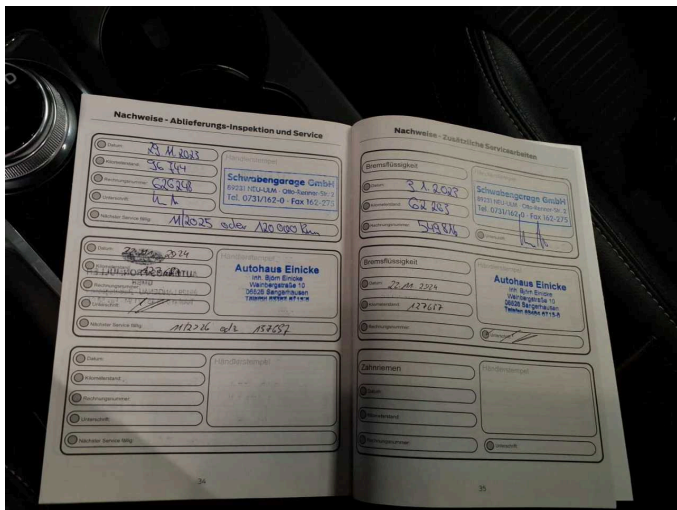 Nachweise - Ablieferungs-Inspektion und Service
Datum 29 11 2023
Kilometerstand 96 744
Rechnungsnummer 626298
Unterschrift
Nächster Service fällig 11/2025 oder 120 000 km
Händlerstempel
Schwabengarage GmbH
89231 NEU-ULM · Otto-Renner-Str. 2
Tel. 0731/162-0 · Fax 162-275
Datum 2024
Unterschrift
Nächster Service fällig 11/2026 od. 157657
Händlerstempel
Autohaus Einicke
Inh. Björn Einicke
Weinbergstraße 10
06526 Sangerhausen
Datum
Kilometerstand
Rechnungsnummer
Unterschrift
Nächster Service fällig
Händlerstempel
34
Nachweise - Zusätzliche Servicearbeiten
Bremsflüssigkeit
Datum 3 1. 2023
Kilometerstand 62 263
Rechnungsnummer
Händlerstempel
Schwabengarage GmbH
89231 NEU-ULM · Otto-Renner-Str. 2
Tel. 0731/162-0 · Fax 162-275
Unterschrift
Bremsflüssigkeit
Datum 22.11.2024
Kilometerstand 127657
Rechnungsnummer
Händlerstempel
Autohaus Einicke
Inh. Björn Einicke
Weinbergstraße 10
06526 Sangerhausen
Unterschrift
Zahnriemen
Datum
Kilometerstand
Rechnungsnummer
Händlerstempel
Unterschrift
35